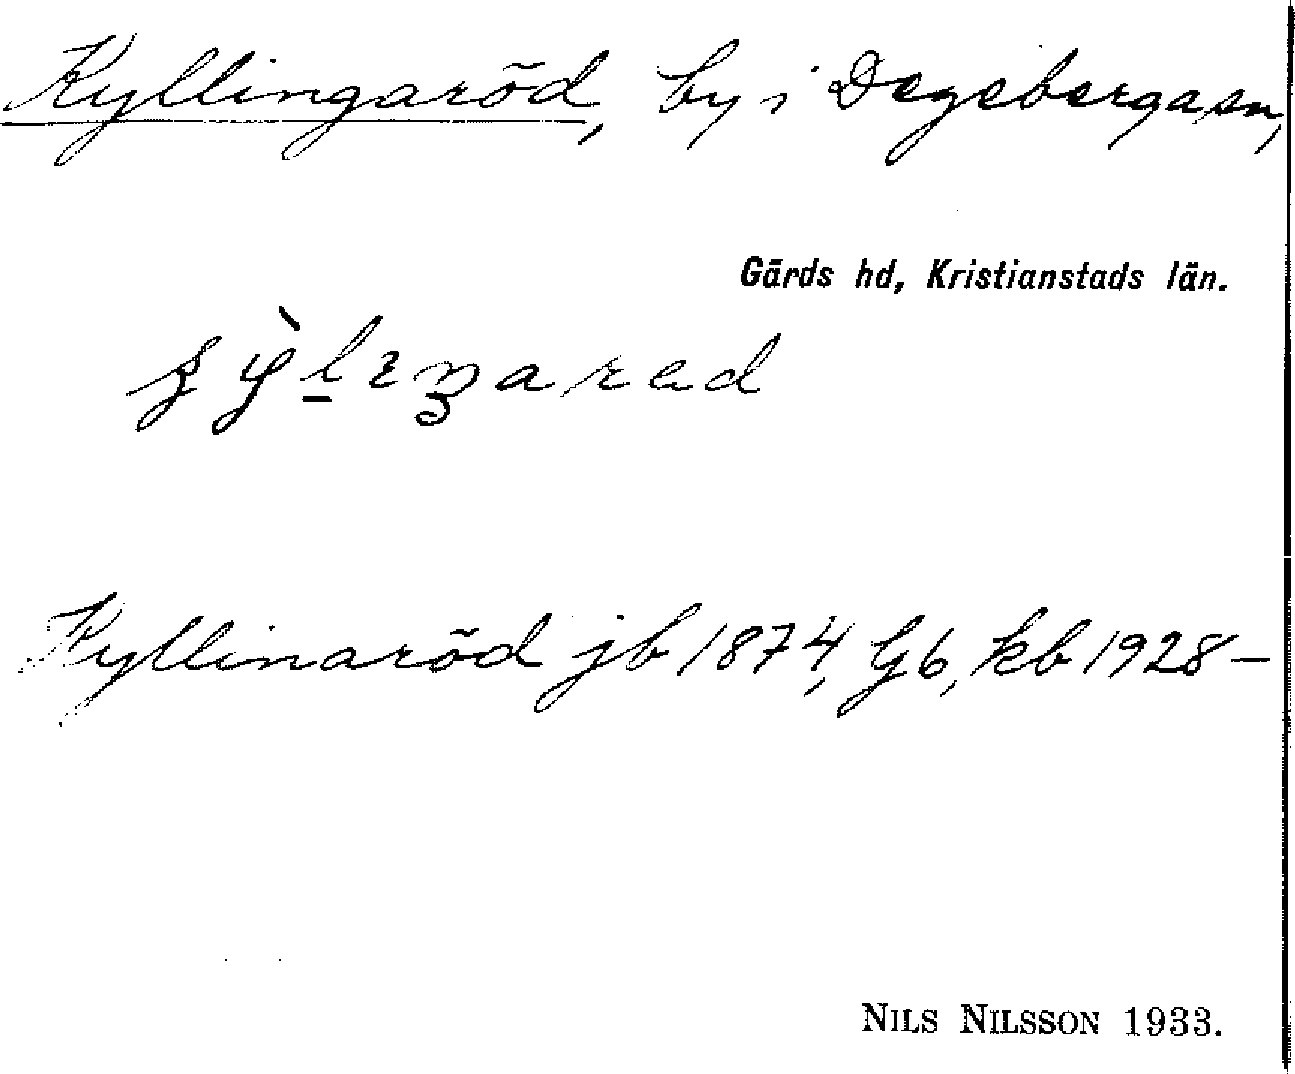 Kyllingaröd, by i Degeberga sn,
Gärds hd, Kristianstads län.
Kyllinaröd jb 1874, Gb, kb 1928-
NILS NILSSON 1933.